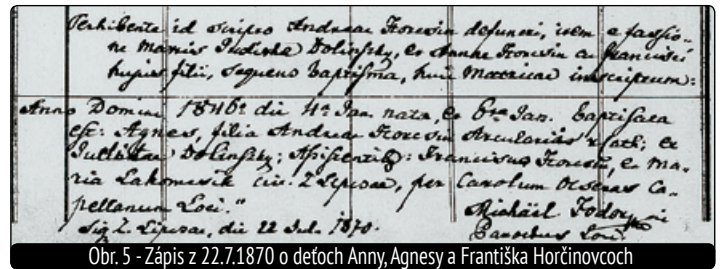 Perhibente id scripto Andreae Horcsin defuncti, item e fassio-
ne Matris Judithae Dolinszky, et Annae Horcsin ac Francisci
hujus filii, sequens baptisma, huic Matricae inscriptum:
Anno Domini 1846º die 4ª Jan. nata, et 6ta Jan. baptisata
est: Agnes, filia Andreae Horcsin Arcularius; et
Judithae Dolinszky; Assistentib: Franciscus Horcsin, et Ma-
ria Lakomcsik civ. Z Lipcsae, per Carolum Ca-
pellanum Loci."
Sig Z. Lipcsae, die 22 Jul. 1870. Michäel Fodor
Parochus Loci.
Obr. 5 - Zápis z 22.7.1870 o deťoch Anny, Agnesy a Františka Horčinovcoch